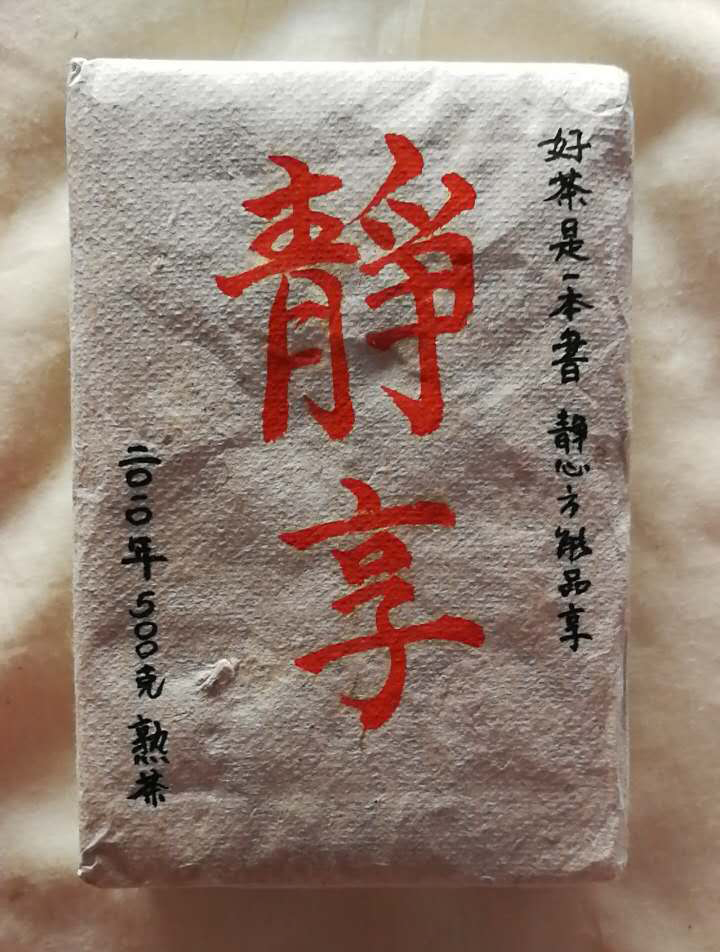 好茶是一本書 靜心方能品享
靜享
二〇二〇年 500克 熟茶